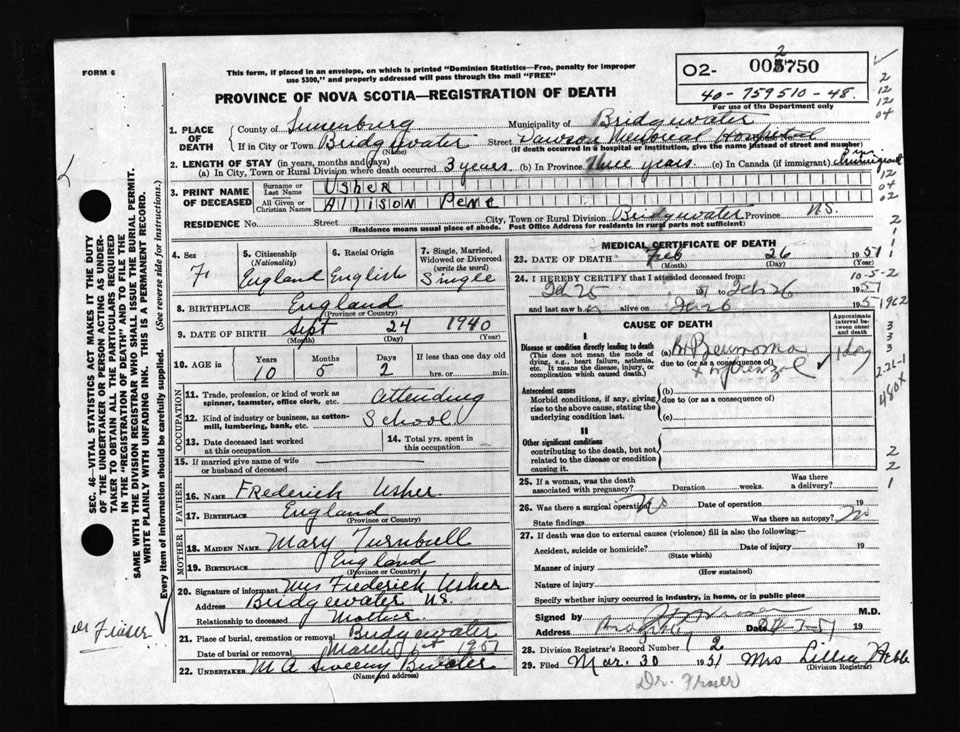 FORM 6
This form, if placed in an envelope, on which is printed "Dominion Statistics—Free, penalty for improper
use $300," and properly addressed will pass through the mail "FREE"
O2- 750
40-759510-48.
For use of the Department only
PROVINCE OF NOVA SCOTIA—REGISTRATION OF DEATH
1. PLACE OF DEATH
County of Lunenburg Municipality of Bridgewater
If in City or Town Bridgewater Street Dawson Memorial Hospital
(Name) (If death occurred in a hospital or institution, give the name instead of street and number)
2. LENGTH OF STAY (in years, months and days)
(a) In City, Town or Rural Division where death occurred 3 years. (b) In Province three years. (c) In Canada (if immigrant)
3. PRINT NAME OF DECEASED
Surname or Last Name Usher
All Given or Christian Names Allison
RESIDENCE No. Street City, Town or Rural Division Bridgewater Province N.S.
(Residence means usual place of abode. Post Office Address for residents in rural parts not sufficient)
4. Sex F
5. Citizenship (Nationality) England
6. Racial Origin English
7. Single, Married, Widowed or Divorced (write the word) Single
8. BIRTHPLACE England
(Province or Country)
9. DATE OF BIRTH Sept 24 1940
(Month) (Day) (Year)
10. AGE in Years Months Days If less than one day old
10 5 2 hrs. or min.
OCCUPATION
11. Trade, profession, or kind of work as spinner, teamster, office clerk, etc. Attending
12. Kind of industry or business, as cotton-mill, lumbering, bank, etc. School
13. Date deceased last worked at this occupation
14. Total yrs. spent in this occupation
15. If married give name of wife or husband of deceased
FATHER
16. NAME Frederick Usher.
17. BIRTHPLACE England
(Province or Country)
MOTHER
18. MAIDEN NAME Mary Turnbull
19. BIRTHPLACE England
(Province or Country)
20. Signature of informant Mrs Frederick Usher
Address Bridgewater N.S.
Relationship to deceased Mother
21. Place of burial, cremation or removal Bridgewater
Date of burial or removal March 1951
22. UNDERTAKER M A Sweeny B'water
(Name and address)
MEDICAL CERTIFICATE OF DEATH
23. DATE OF DEATH Feb 26 1951
(Month) (Day)
24. I HEREBY CERTIFY that I attended deceased from:
Feb 25 1951 Feb 26 1951
and last saw h alive on 1951
CAUSE OF DEATH
Approximate interval between onset and death
I
Disease or condition directly leading to death (a)
(This does not mean the mode of dying, e.g., heart failure, asthenia, etc. It means the disease, injury, or complication which caused death.)
due to (or as a consequence of)
1 day
Antecedent causes (b)
Morbid conditions, if any, giving rise to the above cause, stating the underlying condition last.
due to (or as a consequence of)
(c)
II
Other significant conditions
contributing to the death, but not related to the disease or condition causing it.
25. If a woman, was the death associated with pregnancy? Duration weeks. Was there a delivery?
26. Was there a surgical operation? No Date of operation 19
State findings Was there an autopsy? No
27. If death was due to external causes (violence) fill in also the following:—
Accident, suicide or homicide? Date of injury 19
(State which)
Manner of injury
(How sustained)
Nature of injury
Specify whether injury occurred in industry, in home, or in public place
Signed by M.D.
Address 19
28. Division Registrar's Record Number 12
29. Filed Mar. 30 1951 Mrs
(Division Registrar)
Dr. Fraser
SEC. 46—VITAL STATISTICS ACT MAKES IT THE DUTY
OF THE UNDERTAKER OR PERSON ACTING AS UNDER-
TAKER TO OBTAIN ALL THE PARTICULARS REQUIRED
IN THE "REGISTRATION OF DEATH" AND TO FILE THE
SAME WITH THE DIVISION REGISTRAR WHO SHALL ISSUE THE BURIAL PERMIT.
WRITE PLAINLY WITH UNFADING INK. THIS IS A PERMANENT RECORD.
Every item of information should be carefully supplied. (See reverse side for instructions.)
Dr Fraser